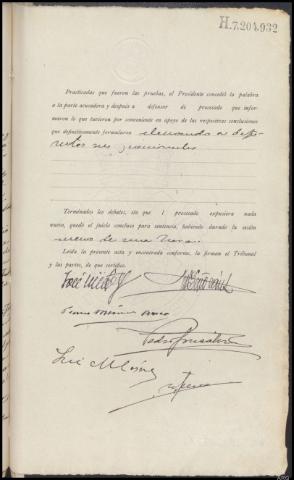 H.7.204.932
Practicadas que fueron las pruebas, el Presidente concedió la palabra
a la parte acusadora y después a defensor de procesado que infor-
maron lo que tuvieron por conveniente en apoyo de las respectivas conclusiones
que definitivamente formularon elevando a defi-
nitivas sus provisionales
Terminados los debates, sin que l procesado expusiera nada
nuevo, quedó el juicio concluso para sentencia, habiendo durado la sesión
menos de una hora.
Leída la presente acta y encontrada conforme, la firman el Tribunal
y las partes, de que certifico.
José
Pedro González
Luis